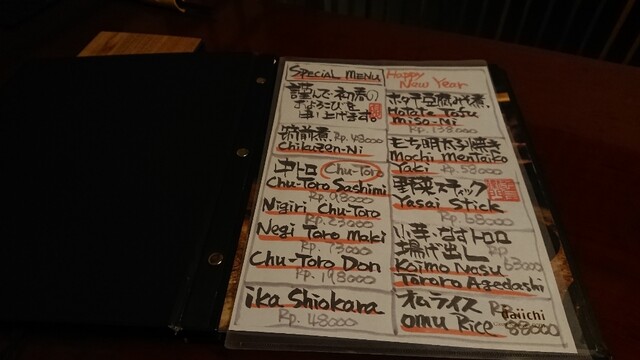 SPECIAL MENU
謹んで初春の
およろこびを
申し上げます。
筑前煮 Rp. 48000
Chikuzen-Ni
中トロ Chu-Toro
Chu-Toro Sashimi
Rp. 98000
Nigiri Chu-Toro
Rp. 23000
Negi Toro Maki
Rp. 73000
Chu-Toro Don
Rp. 198000
ika Shiokara
Rp. 48000
Happy
New Year
ホタテ豆腐みそ煮.
Hotate Tofu
Miso-Ni
Rp. 138000
もち明太子焼き
Mochi Mentaiko
Yaki Rp. 58000
野菜スティック
Yasai Stick
Rp. 68000
小芋.なすトロロ
揚げ出し Rp
63000
Koimo Nasu
Tororo Agedashi
オムライス Rp
omu Rice 88000